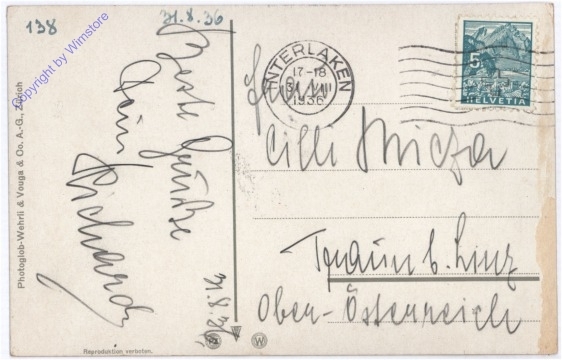 138
31.8.36
Copyright by Wimstore
Photoglob-Wehrli & Vouga & Co. A.-G., Zürich
Beste Grüße
Dein
Richard
31.8.36
INTERLAKEN
17-18
1936
5
HELVETIA
Cilli
Traun b. Linz
Ober-Österreich
Reproduktion verboten.
W